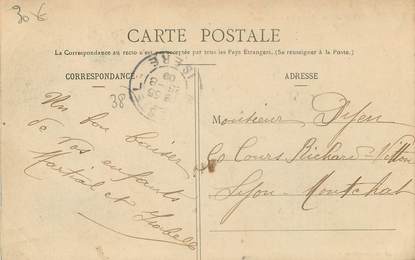 30 €
CARTE POSTALE
La Correspondance au recto n'est pas acceptée par tous les Pays Étrangers. (Se renseigner à la Poste.)
CORRESPONDANCE
ISÈRE
38
Un bon baiser
de vos enfants
Martial et Isabelle
ADRESSE
Monsieur Dyen
60 Cours Richard-Vitton
Lyon-Montchat